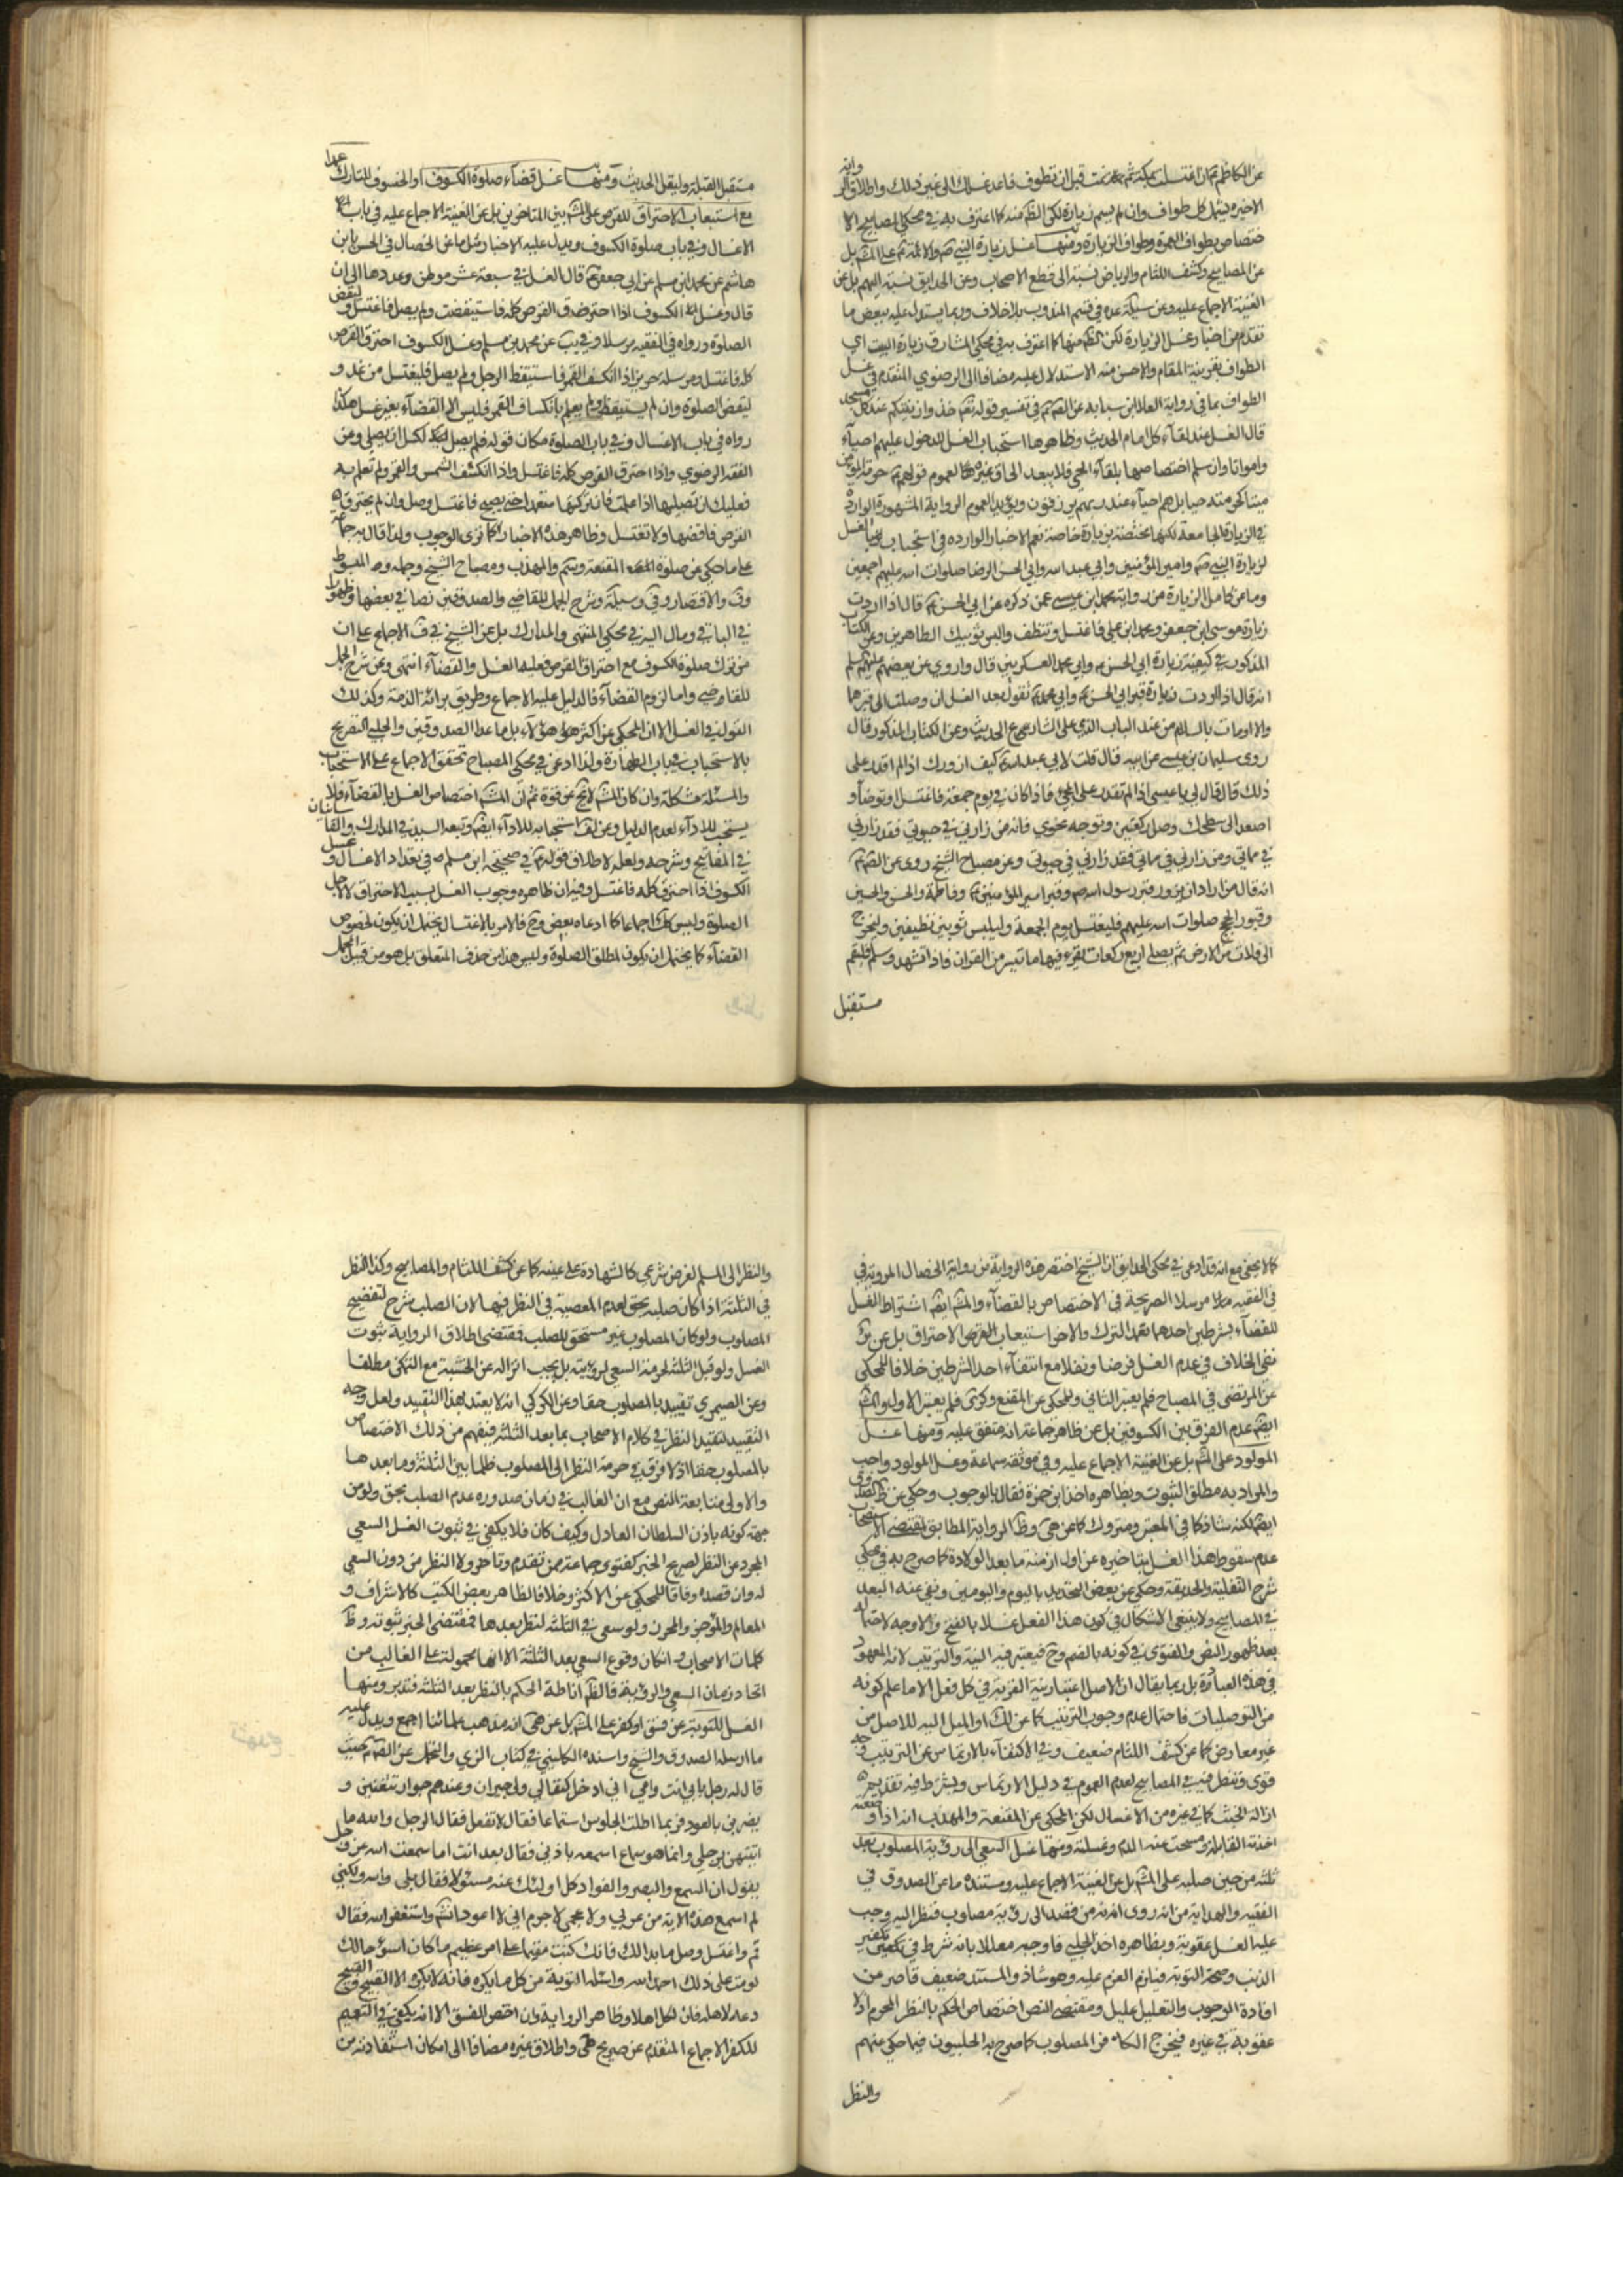 عن الكاظم ع ان اغتسلت بمكة ثم نمت قبل ان تطوف فاعد غسلك الى غير ذلك واطلاق الرواية
الاخيرة يشمل كل طواف وان لم يسم زيارة لكن الظ منه كا اعترف به في محكي المصابيح الا
ختصاص بطواف العمرة وطواف الزيارة ومنها غسل زيارة النبي ص والائمة ع على المش بل
عن المصابيح وكشف اللثام والرياض نسبته الى قطع الاصحاب وعن الحدايق نسبته اليهم بل عن
الغنية الاجماع عليه وعن سيلة عده في قسم المندوب بلا خلاف وربما يستدل عليه ببعض ما
تقدم من اخبار غسل الزيارة لكن الظ منها كا اعترف به في محكي المشارق زيارة البيت اي
الطواف بقرينة المقام والاحسن منه الاستدلال عليه مضافا الى الرضوي المتقدم في غسل
الطواف بما في رواية العلا ابن سيابه عن الص ع في تفسير قوله تع خذوا زينتكم عند كل مسجد
قال الغسل عند لقاء كل امام الحديث وظاهرها استحباب الغسل للدخول عليهم احياء
وامواتا وان سلم اختصاصها بلقاء الحي فلا يبعد الحاق غيره لعموم قولهم ع حرمة المؤمن
ميتا كحرمته حيا بل هم احياء عند ربهم يرزقون ويؤيد العموم الرواية المشهورة الواردة
في الزيارة الجامعة لكنها مختصة بزيارة خاصة نعم الاخبار الواردة في استحباب الغسل
لزيارة النبي ص وامير المؤمنين وابي عبد الله وابي الحسن الرضا صلوات الله عليهم اجمعين
وما عن كامل الزيارة من رواية محمد ابن عيسى عمن ذكره عن ابي الحسن ع قال اذا اردت
زيارة موسى ابن جعفر ومحمد ابن علي فاغتسل وتنظف والبس ثوبيك الطاهرين وعن الكتاب
المذكور في كيفية زيارة ابي الحسن ع وابي محمد العسكريين قال وروي عن بعضهم عليهم السلم
انه قال اذا اردت زيارة قبر ابي الحسن ع وابي محمد ع تقول بعد الغسل ان وصلت الى قبرهما
والا اومات بالسلام من عند الباب الذي على الشارع الحديث وعن الكتاب المذكور قال
روى سليمان بن عيسى عن ابيه قال قلت لابي عبد الله ع كيف ازورك اذا لم اقدر على
ذلك قال قال لي يا عيسى اذا لم تقدر على المجيء فاذا كان في يوم جمعة فاغتسل او توضأ و
اصعد الى سطحك وصل ركعتين وتوجه نحوي فانه من زارني في حيوتي فقد زارني
في مماتي ومن زارني في مماتي فقد زارني في حيوتي وعن مصباح الشيخ روى عن الص ع
انه قال من اراد ان يزور قبر رسول الله ص وقبر امير المؤمنين ع وفاطمة والحسن والحسين
وقبور الحجج صلوات الله عليهم فليغتسل يوم الجمعة وليلبس ثوبين نظيفين وليخرج
الى فلات من الارض ثم يصلي اربع ركعات يقرء فيها ما تيسر من القران فاذا تشهد وسلم فليقم
مستقبل
مستقبل القبلة وليقل الحديث ومنها غسل قضاء صلوة الكسوف او الخسوف للتارك عمدا
مع استيعاب الاحتراق للقرص على المش بين المتاخرين بل عن الغنية الاجماع عليه في باب
الاغسال وفي باب صلوة الكسوف ويدل عليه الاخبار مثل ما عن الخصال في الحسن بابن
هاشم عن محمد ابن مسلم عن ابي جعفر ع قال الغسل في سبعة عشر موطن وعددها الى ان
قال وغسل الكسوف اذا احترق القرص كله فاستيقضت ولم يصل فاغتسل وليقض
الصلوة ورواه في الفقيه مرسلا وفي يب عن محمد بن مسلم وغسل الكسوف احترق القرص
كله فاغتسل ومرسلة حريز اذا انكسف القمر فاستيقظ الرجل ولم يصل فليغتسل من غد و
ليقض الصلوة وان لم يستيقظ ولم يعلم بانكساف القمر فليس الا القضاء بغير غسل هكذا
رواه في باب الاغسال وفي باب الصلوة مكان قوله فلم يصل فكسل ان يصلي وعن
الفقه الرضوي واذا احترق القرص كله فاغتسل واذا انكسف الشمس والقمر ولم تعلم به
فعليك ان تصليها اذا علمت فان تركتها متعمدا حتى يصبح فاغتسل وصل وان لم يحترق
القرص فاقضها ولا تغتسل وظاهر هذه الاخبار كما ترى الوجوب ولذا قال به جماعة
على ما حكي عن صلوة المقنعة والمهذب ومصباح الشيخ وجمله والمبسوط
وف والاقتصار وفي وسيلة وشرح الجمل للقاضي والصدوقين نصا في بعضها وظهورا
في الباقي ومال اليه في محكي المنتهى والمدارك بل عن الشيخ في ف الاجماع على ان
من ترك صلوة الكسوف مع احتراق القرص فعليه الغسل والقضاء انتهى وعن شرح الجمل
للقاضي واما لزوم القضاء فالدليل عليه الاجماع وطريق برائة الذمة وكذلك
القول في الغسل الا ان المحكي عن اكثر هؤلاء بل ما عدا الصدوقين والحلبي التصريح
بالاستحباب في باب الطهارة ولذا ادعى في محكي المصباح تحقق الاجماع على الاستحباب
والمسئلة مشكلة وان كان المش لا يخ عن قوة ثم ان المش اختصاص الغسل بالقضاء فلا
يستحب للاداء لعدم الدليل وعن لف استحبابه للاداء ايض وتبعه السيد في المدارك والقاساني
في المفاتيح وشرحه ولعله لاطلاق قوله ع في صحيحة ابن مسلم في تعداد الاغسال وغسل
الكسوف اذا احترق كله فاغتسل وفيه ان ظاهره وجوب الغسل بسبب الاحتراق لاجل
الصلوة وليس كك اجماعا كا ادعاه بعض وح فالامر بالاغتسال يحتمل ان يكون لخصوص
القضاء كا يحتمل ان يكون لمطلق الصلوة وليس هذا من حذف المتعلق بل هو من قبيل المجمل
كالا يخفى مع انه قد ادعى في محكي الحدايق ان الشيخ اختصر هذه الرواية من رواية الخصال المروية في
في الفقيه مرسلا الصريحة في الاختصاص بالقضاء والمش ايض اشتراط الغسل
للقضاء بشرطين احدهما تعمد الترك والاخر استيعاب القرص الاحتراق بل عن
نفي الخلاف في عدم الغسل فرضا ونفلا مع انتفاء احد الشرطين خلافا للمحكي
عن المرتضى في المصباح فلم يعتبر الثاني وللمحكي عن المقنع وكرى فلم يعتبر الاول والمش
ايض عدم الفرق بين الكسوفين بل عن ظاهر جماعة انه متفق عليه ومنها غسل
المولود على المش بل عن الغنية الاجماع عليه وفي موثقة سماعة وغسل المولود واجب
والمراد به مطلق الثبوت وبظاهره اخذ ابن حمزة فقال بالوجوب وحكي عن ظ الصدوق
ايض لكنه شاذ كا في المعتبر ومتروك كا عن هى وظ الرواية المطابق لمقتضى الاستصحاب
عدم سقوط هذا الغسل بتاخيره عن اول ازمنة ما بعد الولادة كا صرح به في محكي
شرح النفلية والحديقة وحكي عن بعض التحديد باليوم واليومين ونفي عنه البعد
في المصابيح ولا ينبغي الاشكال في كون هذا الفعل غسلا بالفتح والاوجه لاحتماله
بعد ظهور النص والفتوى في كونه بالضم وح فيعتبر فيه النية والترتيب لانه المعهود
في هذه العبادة بل ربما يقال ان الاصل اعتبار نية القربة في كل فعل الا ما علم كونه
من التوصليات فاحتمال عدم وجوب الترتيب كا عن لك او الميل اليه للاصل من
غير معارض كا عن كشف اللثام ضعيف وفي الاكتفاء بالارتماس عن الترتيب وجه
قوى وتنظر فيه في المصابيح لعدم العموم في دليل الارتماس ويشترط فيه تقديم
ازالة الخبث كا في غيره من الاغسال لكن المحكي عن المقنعة والمهذب انه اذا وضعته
اخذته القابلة ومسحت عنه الدم وغسلته ومنها غسل السعي الى رؤية المصلوب بعد
ثلثة من حين صلبه على المش بل عن الغنية الاجماع عليه ومستنده ما عن الصدوق في
الفقيه والهداية من انه روى ان من قصد الى رؤية مصلوب فنظر اليه وجب
عليه الغسل عقوبة وبظاهره اخذ الحلبي فاوجبه معللا بانه شرط في تكفير
الذنب وصحة التوبة فيلزم العزم عليه وهو شاذ والمستند ضعيف قاصر عن
افادة الوجوب والتعليل عليل ومقتضى النص اختصاص الحكم بالنظر المحرم اذ لا
عقوبة في غيره فيخرج النظر من المصلوب كا صرح به الحلبيون فيما حكي عنهم
والنظر
والنظر الى المسلم لغرض شرعي كالشهادة على عينه كا عن كشف اللثام والمصابيح وكذا النظر
في الثلثة اذا كان صلبه بحق لعدم المعصية في النظر فيها لان الصلب شرع لتفضيح
المصلوب ولو كان المصلوب غير مستحق للصلب فمقتضى اطلاق الرواية ثبوت
الغسل ولو قبل الثلثة لحرمة السعي لرؤيته بل يجب انزاله عن الخشبة مع التمكن مطلقا
وعن الصيمري تقييد بالمصلوب حقا وعن الكركي انه لا يعتد بهذا التقييد ولعل وجه
التقييد لتقييد النظر في كلام الاصحاب بما بعد الثلثة فيفهم من ذلك الاختصاص
بالمصلوب حقا اذ لا فرق في حرمة النظر الى المصلوب ظلما بين الثلثة وما بعدها
والاولى متابعة النص مع ان الغالب في زمان صدوره عدم الصلب بحق ولو من
جهة كونه باذن السلطان العادل وكيف كان فلا يكفي في ثبوت الغسل السعي
المجرد عن النظر لصريح الخبر كفتوى جماعة ممن تقدم وتاخر ولا النظر من دون السعي
له وان قصده وفاقا للمحكي عن الاكثر وخلافا لظاهر بعض الكتب كالاشراف و
المعالم والموجز والمحرر ولو سعى في الثلثة لنظر بعدها فمقتضى الخبر ثبوته وظ
كلمات الاصحاب وان كان وقوع السعي بعد الثلثة الا انها محمولة على الغالب من
اتحاد زمان السعي والرؤية فالظ اناطة الحكم بالنظر بعد الثلثة فتدبر ومنها
الغسل للتوبة عن فسق او كفر على المش بل عن هى انه مذهب علمائنا اجمع ويدل عليه
ما ارسله الصدوق والشيخ واسنده الكليني في كتاب الزي والتجمل عن الص ع حيث
قال له رجل بابي انت وامي اني ادخل كنفا لي ولي جيران وعندهم جوار يتغنين و
يضربن بالعود فربما اطلت الجلوس استماعا فقال لا تفعل فقال الرجل والله ما
اتيتهن برجلي وانما هو سماع اسمعه باذني فقال بعد انت اما سمعت الله عز وجل
يقول ان السمع والبصر والفواد كل اولئك عنه مسئولا فقال بلى والله ولكني
لم اسمع هذه الاية من عربي ولا عجمي لا جرم اني لا اعود انش واستغفر الله فقال
قم واغتسل وصل ما بدالك فانك كنت مقيما على امر عظيم ما كان اسوء حالك
لو مت على ذلك احمد الله واسئله التوبة من كل ما يكره فانه لا يكره الا القبيح والقبيح
دعه لاهله فان لكل اهلا وظاهر الرواية وان اختص الفسق الا انه يكفي في التعميم
للكفر الاجماع المتقدم عن صريح هى واطلاق غيره مضافا الى امكان استفادته من